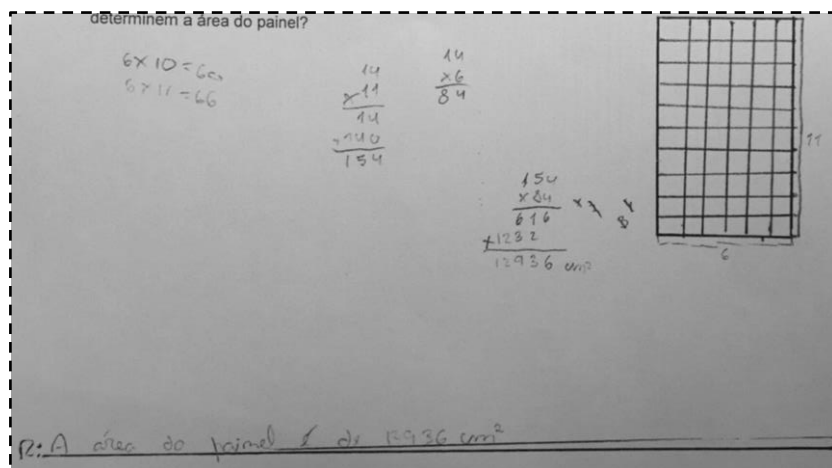 determinem a área do painel?
6 × 10 = 60
6 × 11 = 66
14
× 11
14
+ 140
154
14
× 6
84
154
× 84
616
+ 1232
12936 cm²
11
6
R: A área do painel é de 12936 cm²